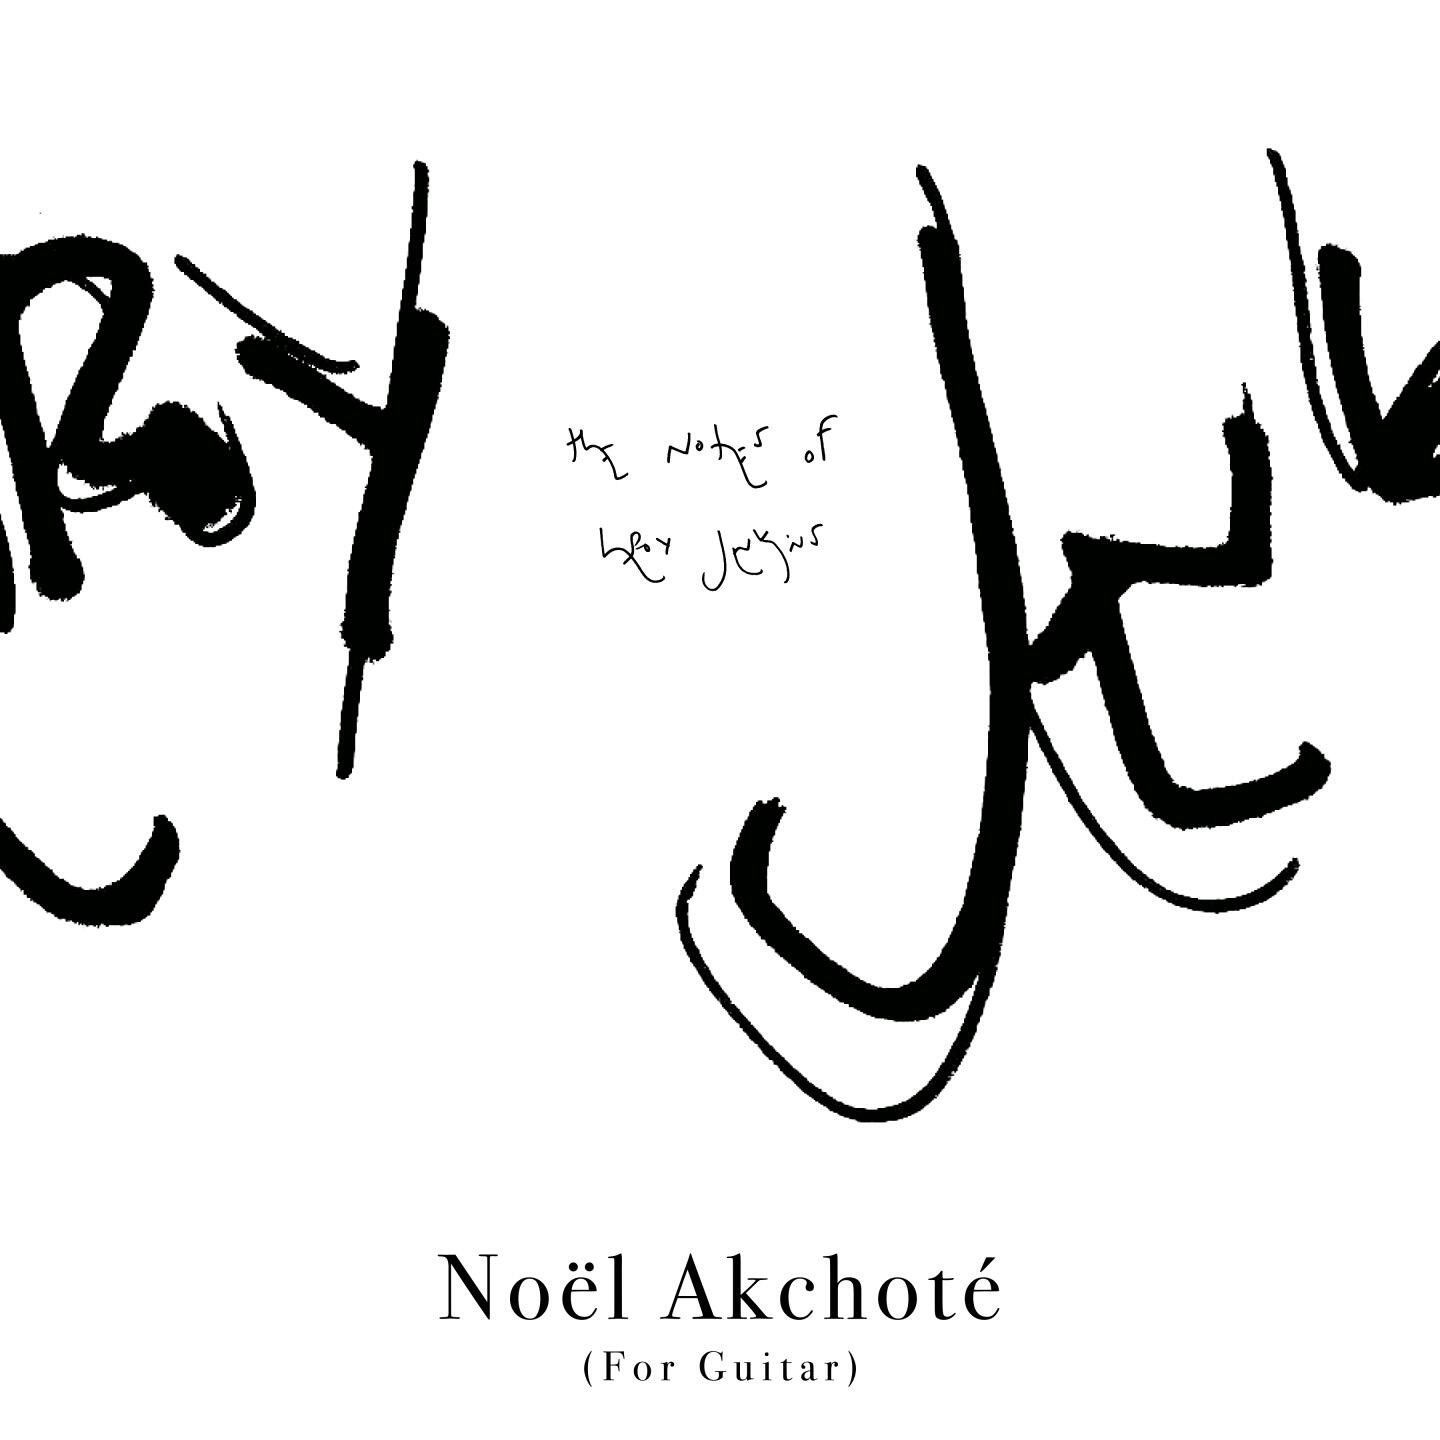 ROY Jen
the Notes of
Leroy Jenkins
Noël Akchoté
(For Guitar)